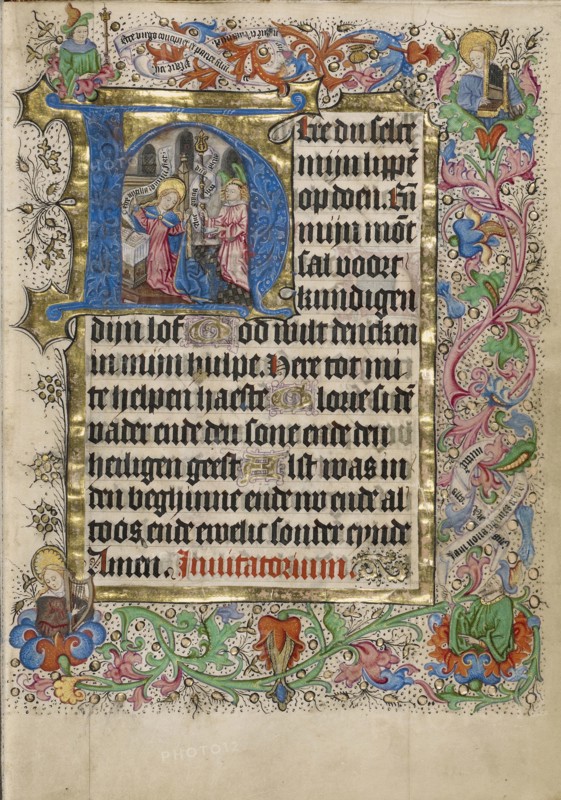 Ecce virgo concipiet et pariet filiu
Here du selt
mijn lippē
op doen. Eñ
mijn mōt
sal voort
kundigen
dijn lof God wilt dencken
in mijn hulpe. Here tot mi
te helpen haeste Glorie si dē
vader ende den sone ende den
heiligen geest Alst was in
den beghinne ende nv ende al
toos ende ewelic sonder eynde
Amen. Inuitatorium.
PHOTO12